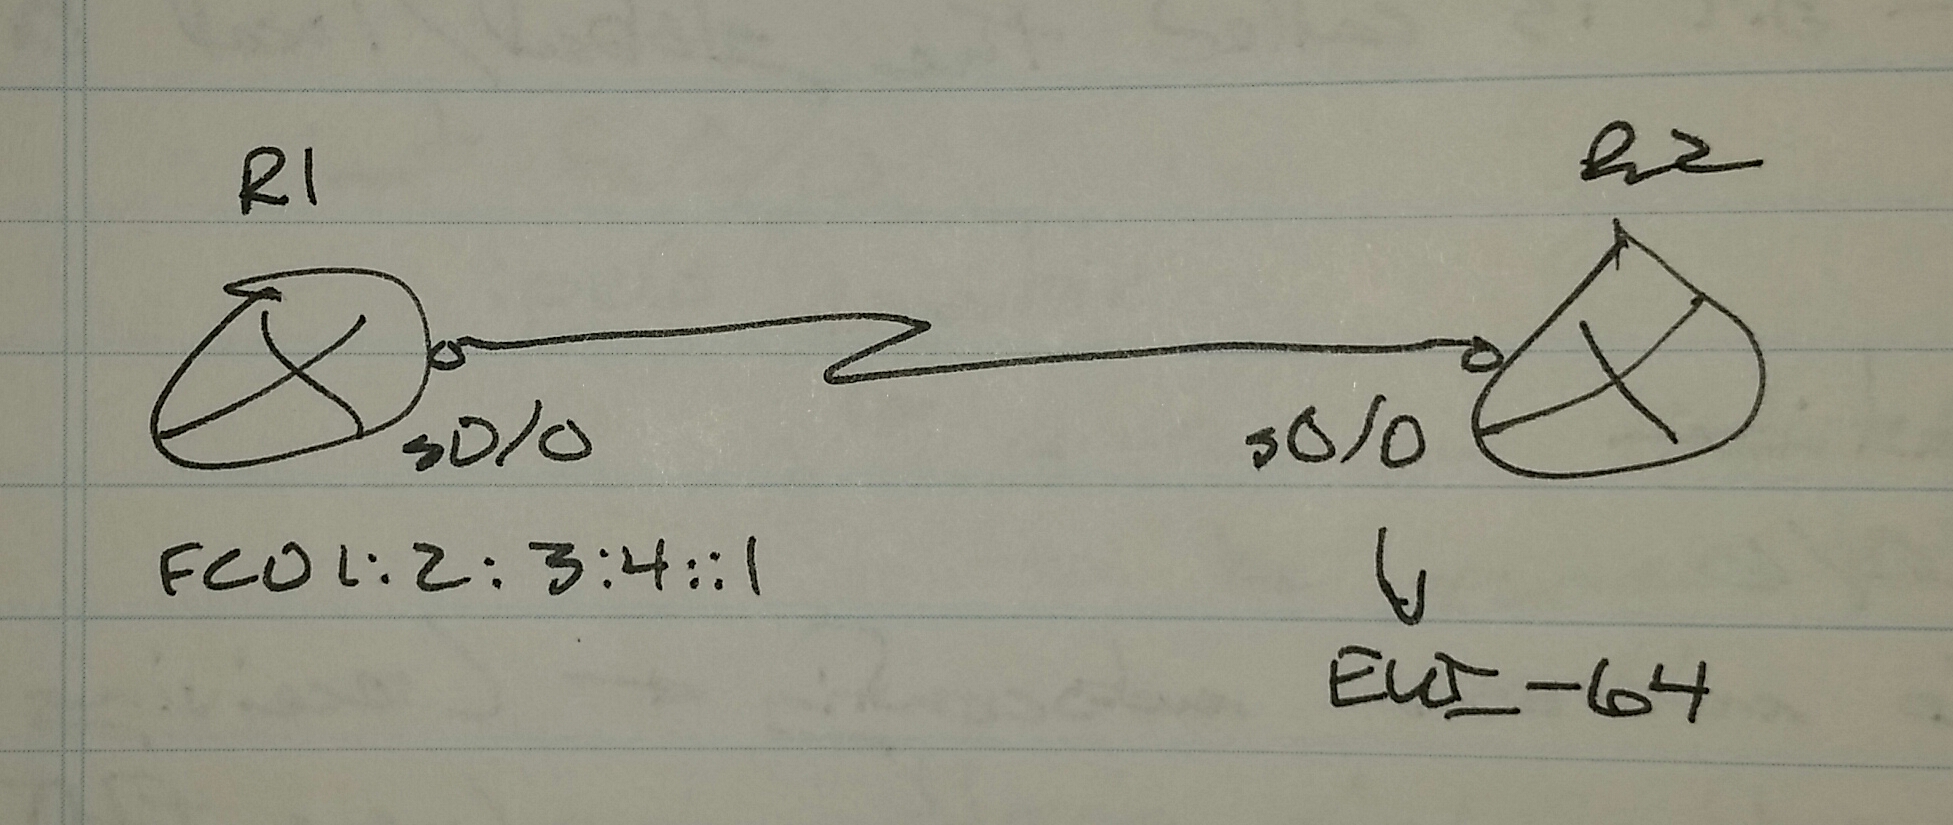 R1
R2
s0/0
s0/0
FC01:2:3:4::1
EUI-64